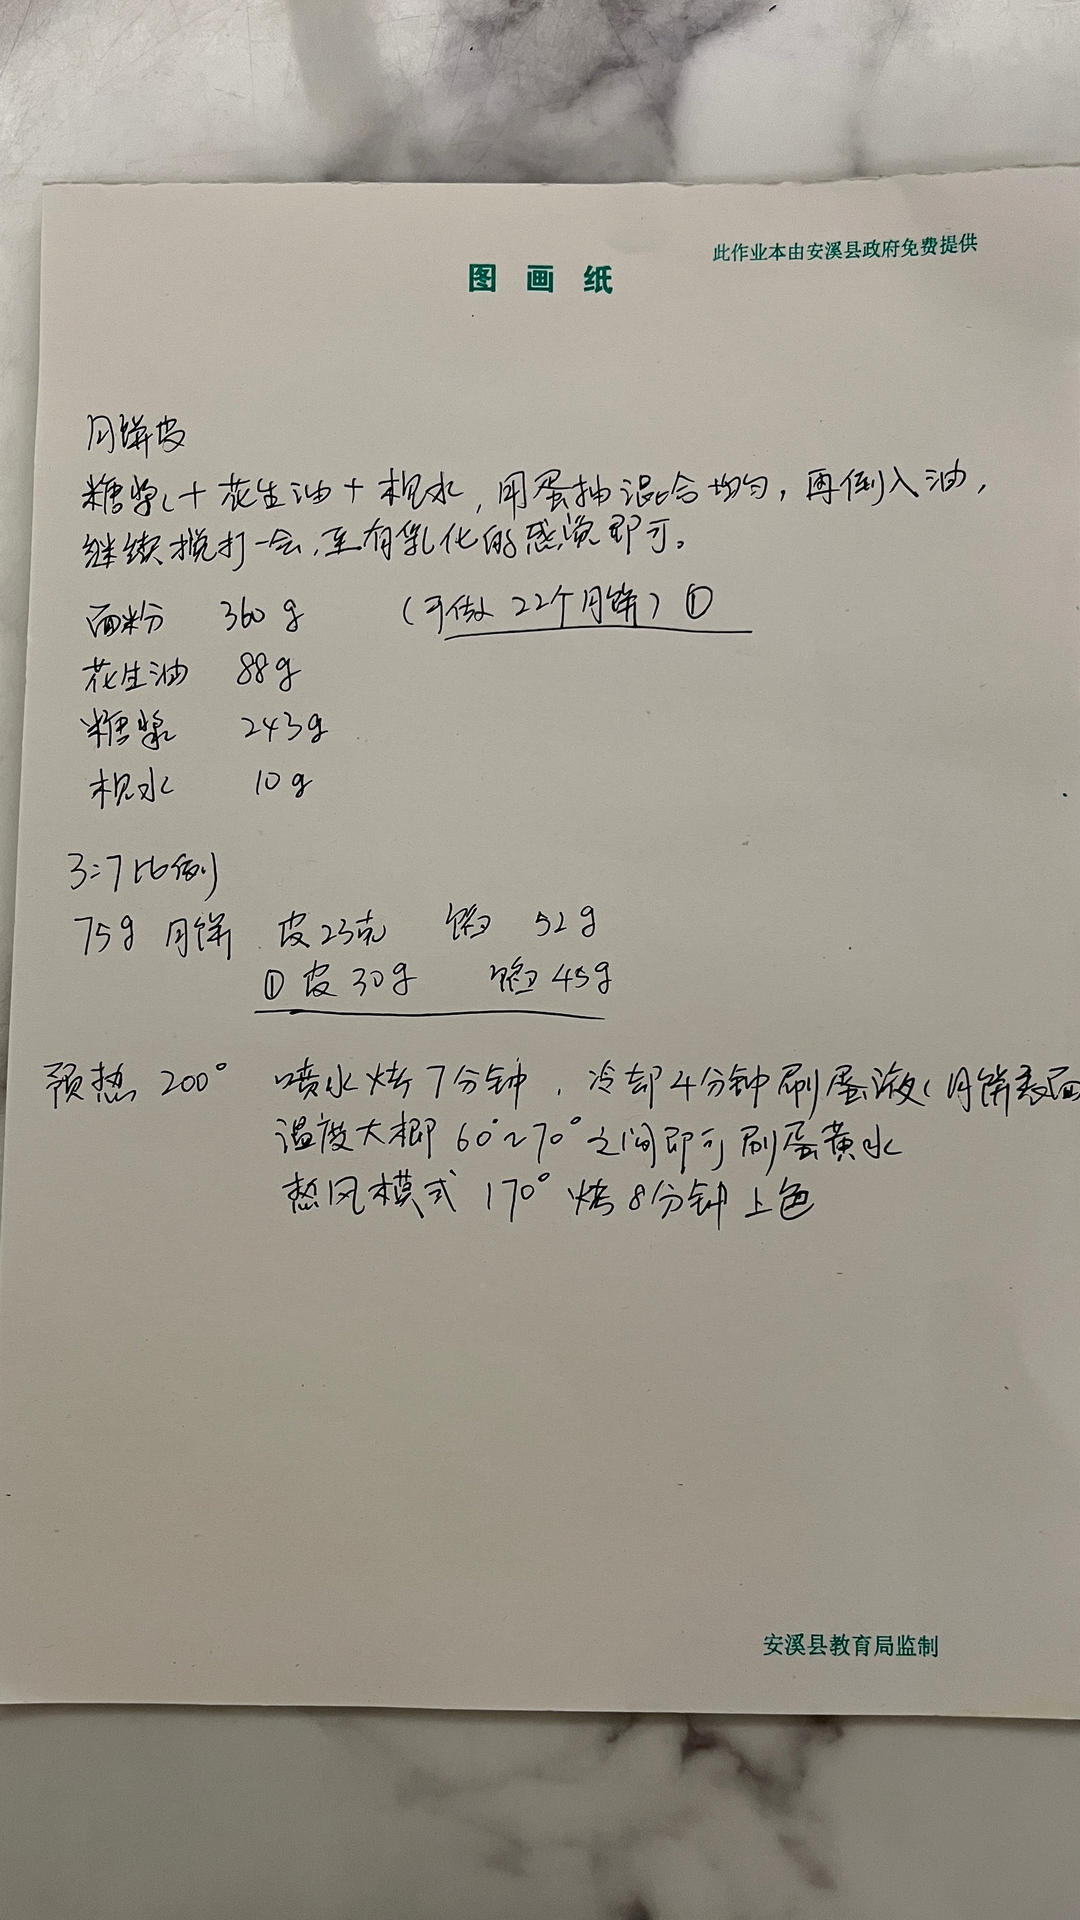 此作业本由安溪县政府免费提供
图画纸
月饼皮
糖浆+花生油+枧水,用蛋抽混合均匀,再倒入油,
继续搅打一会,至有乳化的感觉即可。
面粉 360g (可做22个月饼)①
花生油 88g
糖浆 243g
枧水 10g
3:7比例
75g月饼 皮23克 馅 52g
①皮30g 馅45g
预热200° 喷水烤7分钟,冷却4分钟刷蛋液(月饼表面
温度大概60°~70°之间即可刷蛋黄水
热风模式170°烤8分钟上色
安溪县教育局监制